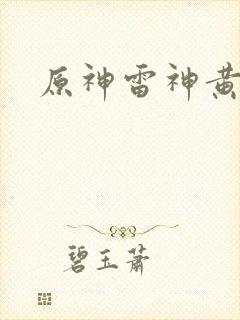 原神雷神黄
碧玉萧